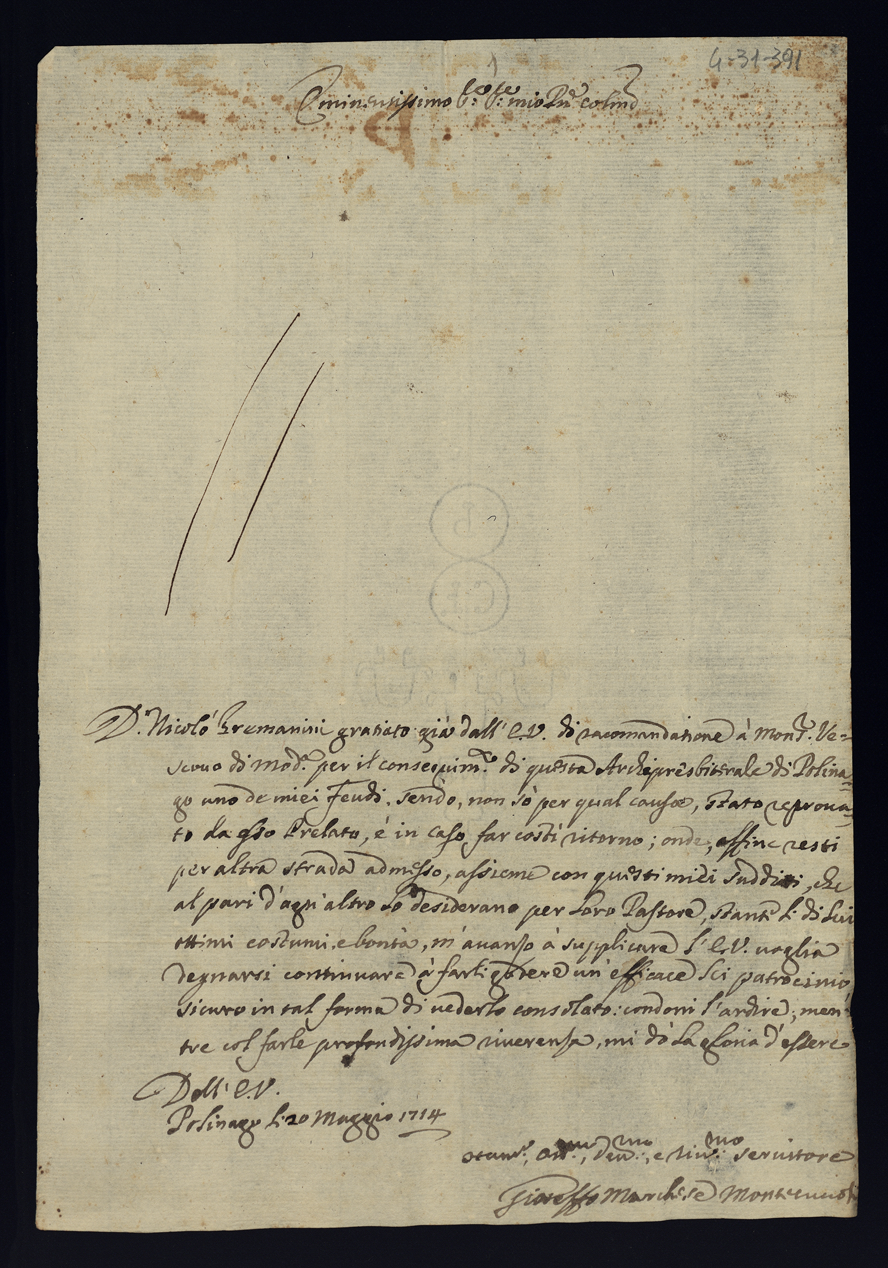 4-31-391
Eminentissimo Sig.re mio Pñe colmo
D. Nicolò Gremanini gratiato già dall' E.V. di racomandatione à Mons.r Ve=
scouo di Mod.a per il conseguim.to di questa Archipresbiterale di Polina=
go uno de miei Feudi, sendo, non sò per qual causa, stato reproua=
to da esso Prelato, è in caso far costì ritorno; onde, affine resti
per altra strada admesso, assieme con questi miei sudditi, che
al pari d'agn' altro lo desiderano per Loro Pastore, stante li di Lui
ottimi costumi, e bontà, m'auanzo à supplicare l' E.V. uoglia
degnarsi continuare à farli godere un' efficace Sci patrocinio
sicuro in tal forma di uederlo consolato: condoni l'ardire, men=
tre col farle profondissima riuerenza, mi dò la gloria d'essere
Dell' E.V.
Polinago li 20 Maggio 1714
deu.mo, e riu.mo seruitore
Marchese Montecuccoli
B